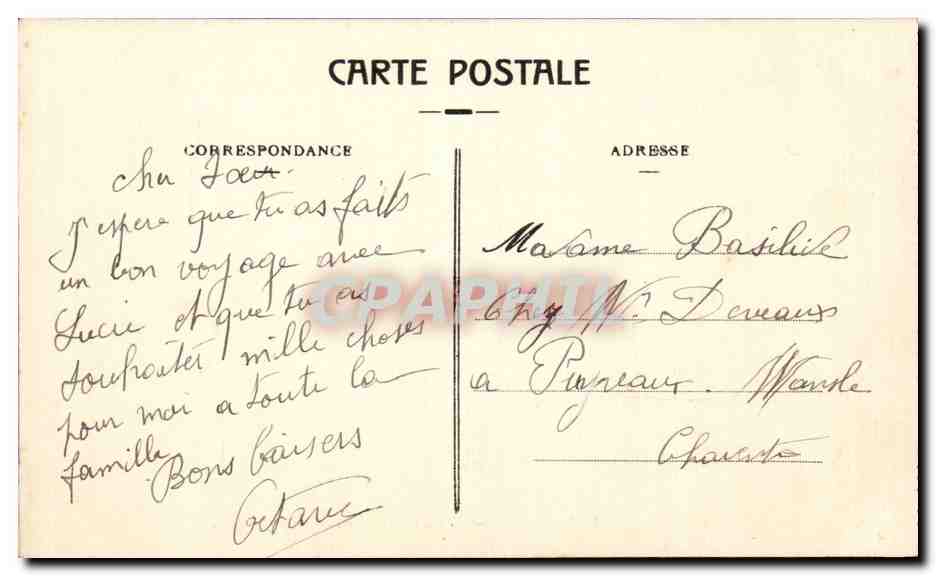 CARTE POSTALE
CORRESPONDANCE
cher
J'espere que tu as faits
un bon voyage avec
Lucie et que tu as
souhaités mille choses
pour moi a toute la
famille
Bons baisers
Octavie
ADRESSE
Madame
Chez Deveaux
a Puyreaux.
Charente
CPAPHIL